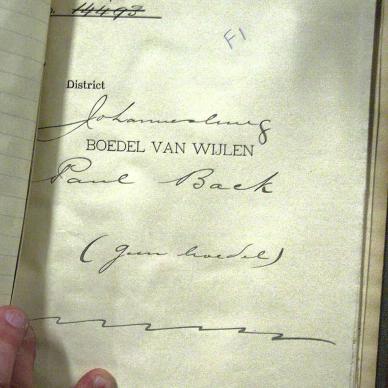 14493
F1
District
Johannesburg
BOEDEL VAN WIJLEN
Paul Back
(geen boedel)